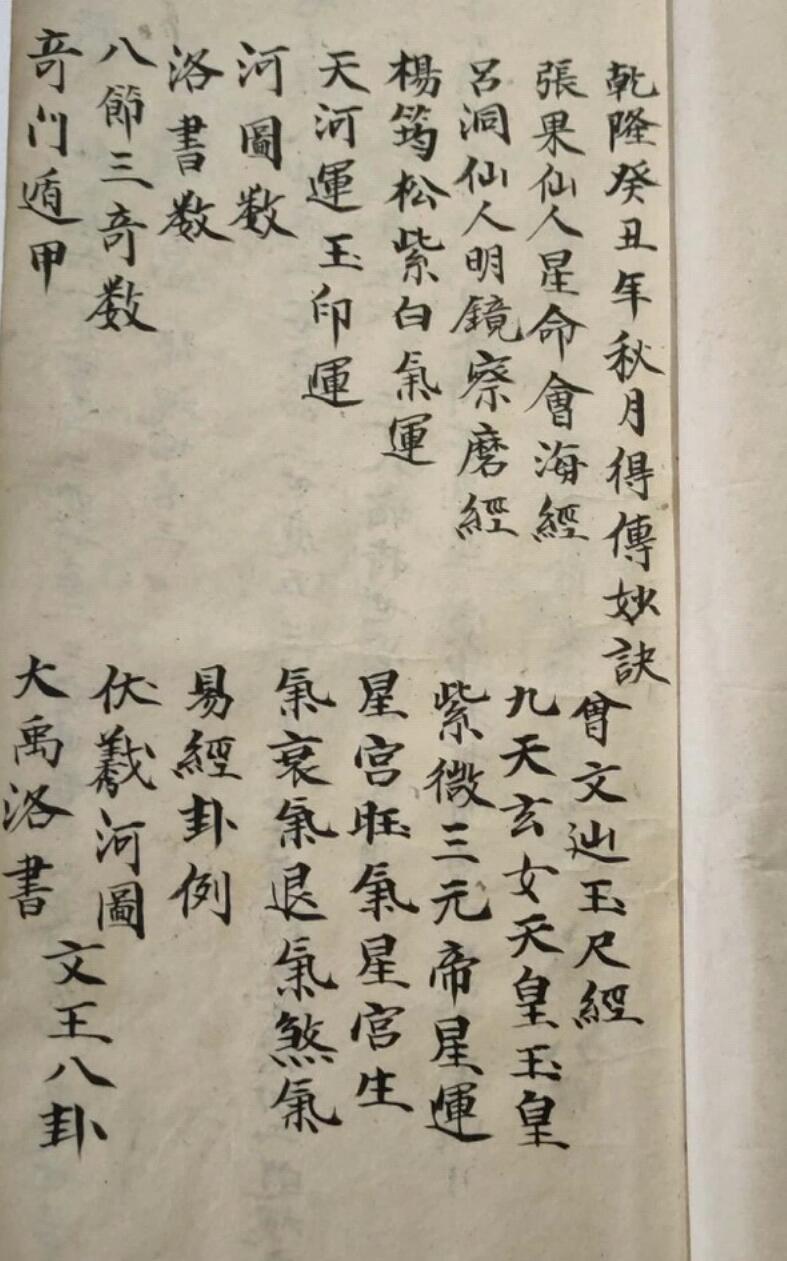 乾隆癸丑年秋月得傳妙訣
張果仙人星命會海經
呂洞仙人明鏡察磨經
楊筠松紫白氣運
天河運玉印運
河圖数
洛書数
八節三竒数
竒门遁甲
曾文辿玉尺經
九天玄女天皇玉皇
紫微三元帝星運
星宫旺氣星宫生
氣衰氣退氣煞氣
易經卦例
伏羲河圖
文王八卦
大禹洛書